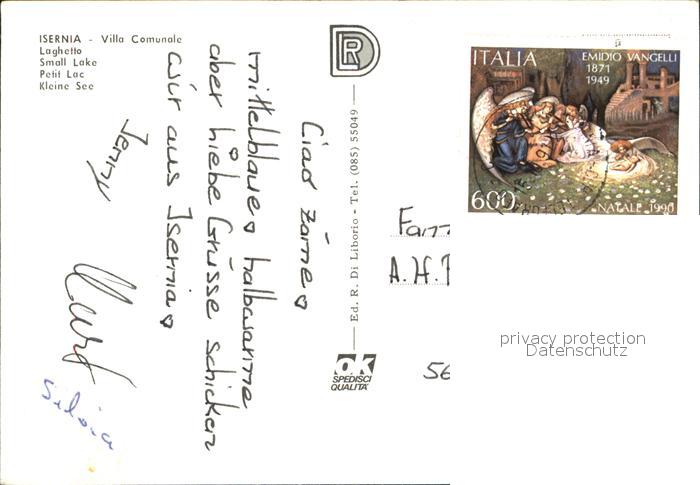 ISERNIA - Villa Comunale
Laghetto
Small Lake
Petit Lac
Kleine See
Ciao zäme
mittelblaue halbwarme
aber liebe Grüsse schicken
wir aus Isernia
Jenny
Kurt
Silvia
DLR
Ed. R. Di Liborio - Tel. (085) 55049
ok
SPEDISCI
QUALITÀ
ITALIA
EMIDIO VANGELLI
1871
1949
600
NATALE 1990
Fam
A.H.
56
privacy protection
Datenschutz